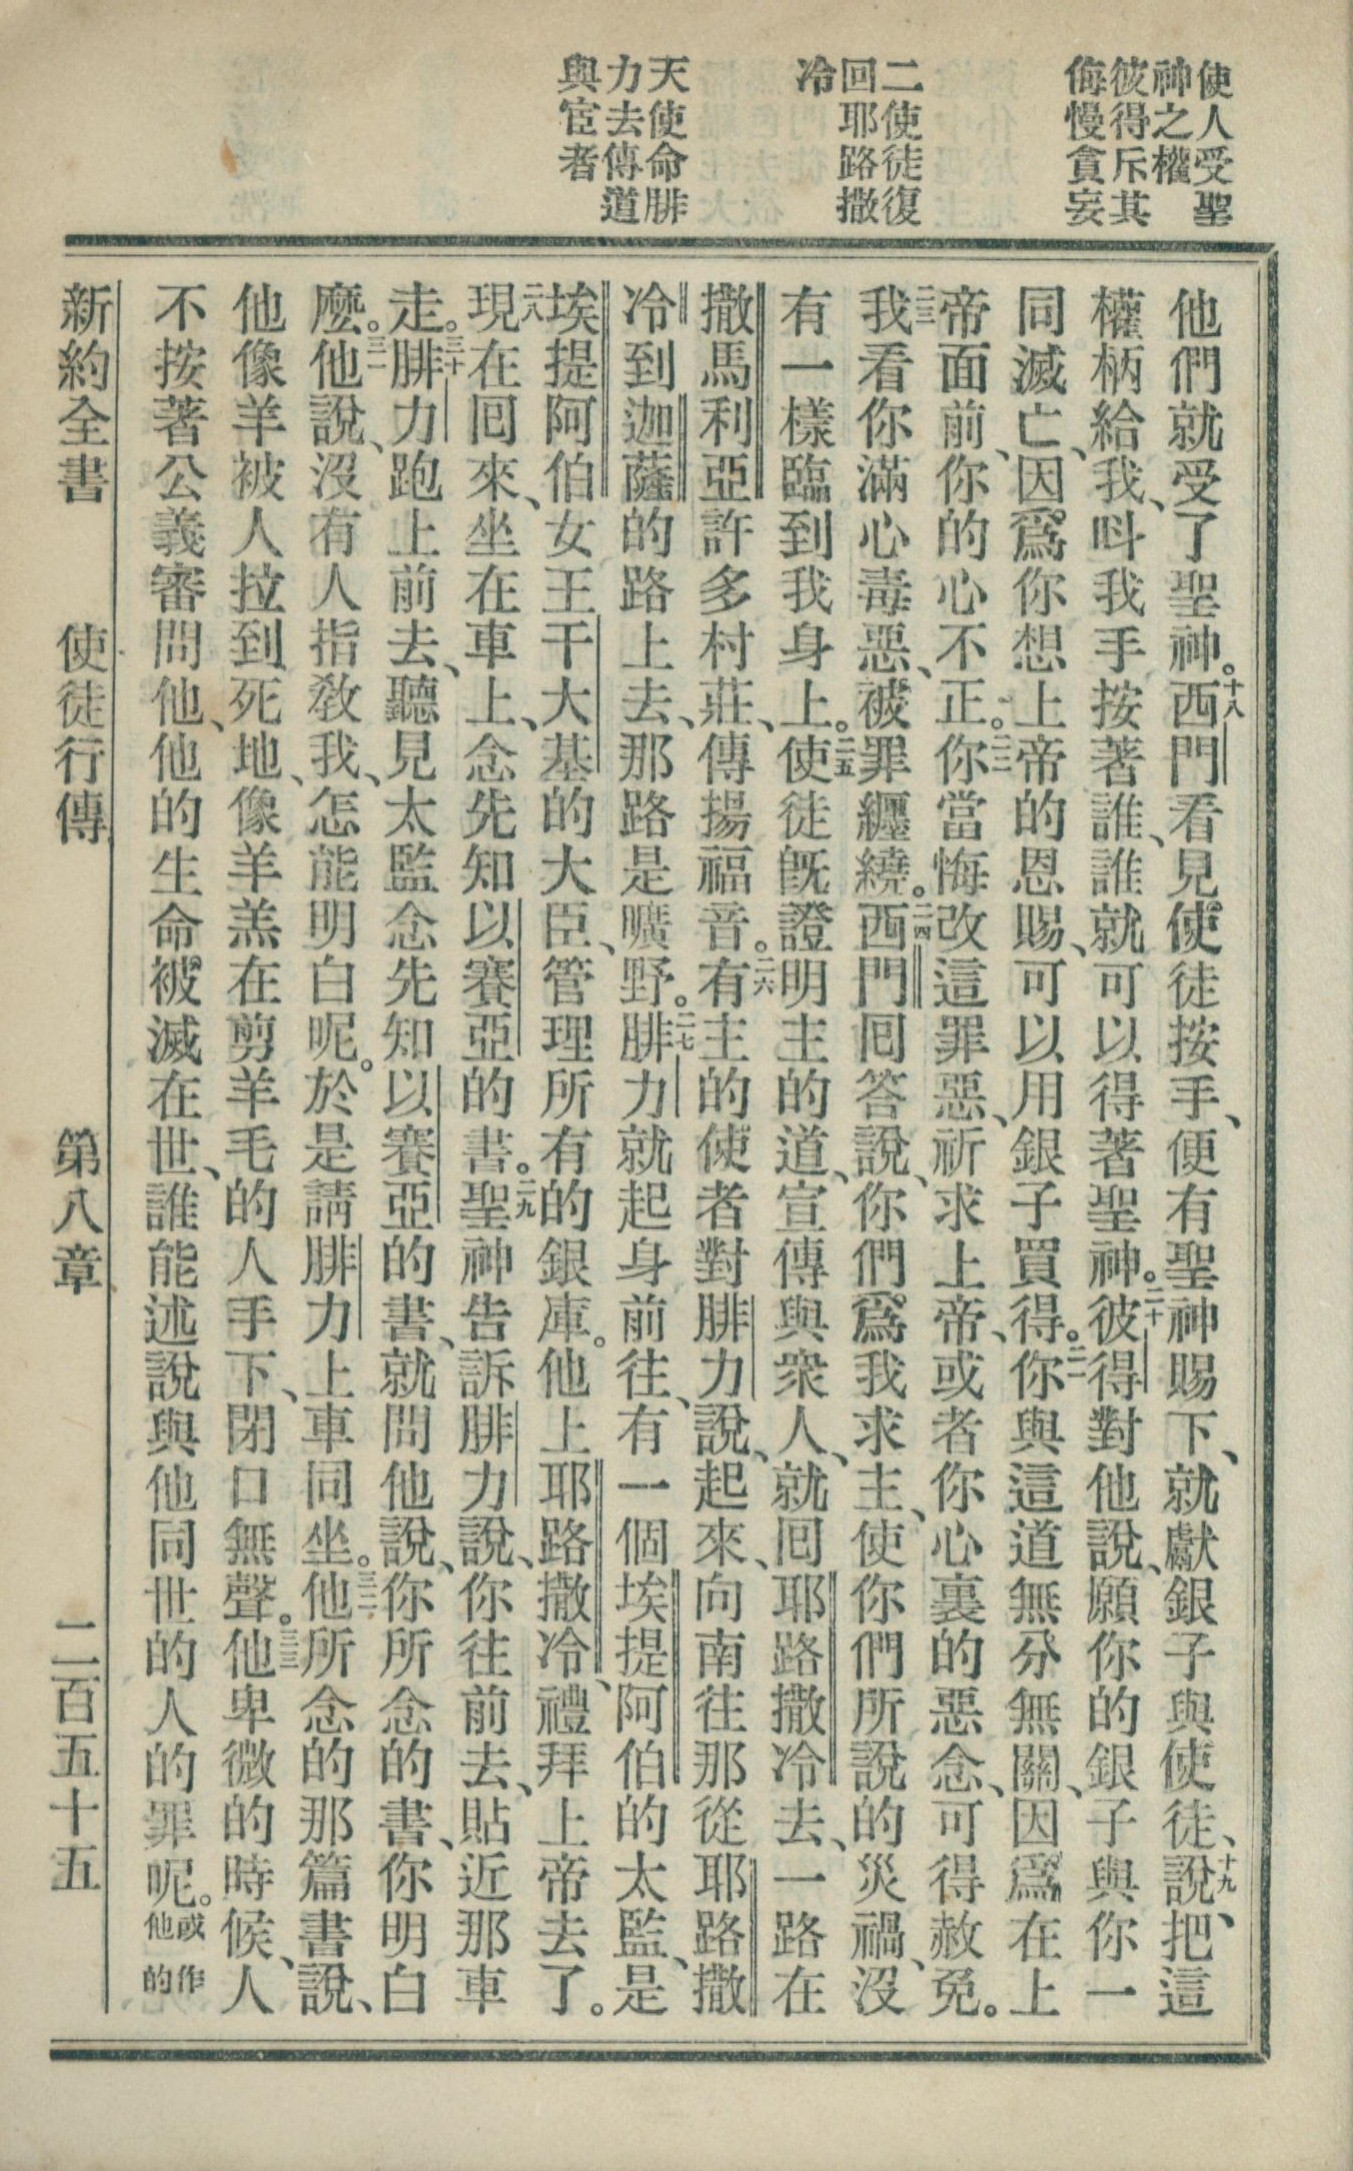 使人受聖
神之權
彼得斥其
侮慢貪妄
二使徒復
回耶路撒
冷
天使命腓
力去傳道
與宦者
他們就受了聖神。十八西門看見使徒按手、便有聖神賜下、就獻銀子與使徒、十九說、把這
權柄給我、呌我手按著誰、誰就可以得著聖神。二十彼得對他說、願你的銀子與你一
同滅亡、因爲你想上帝的恩賜、可以用銀子買得。二一你與這道無分無關、因爲在上
帝面前、你的心不正。二二你當悔改這罪惡、祈求上帝、或者你心裏的惡念、可得赦免。
二三我看你滿心毒惡、被罪纏繞。二四西門囘答說、你們爲我求主、使你們所說的災禍、沒
有一樣臨到我身上。二五使徒旣證明主的道、宣傳與衆人、就囘耶路撒冷去、一路在
撒馬利亞許多村莊、傳揚福音。二六有主的使者對腓力說、起來、向南往那從耶路撒
冷到迦薩的路上去、那路是曠野。二七腓力就起身前往、有一個埃提阿伯的太監、是
埃提阿伯女王干大基的大臣、管理所有的銀庫。他上耶路撒冷、禮拜上帝去了。
二八現在囘來、坐在車上、念先知以賽亞的書。二九聖神告訴腓力說、你往前去、貼近那車
走。三十腓力跑上前去、聽見太監念先知以賽亞的書、就問他說、你所念的書、你明白
麼。三一他說、沒有人指敎我、怎能明白呢。於是請腓力上車同坐。三二他所念的那篇書說、
他像羊被人拉到死地、像羊羔在剪羊毛的人手下、閉口無聲。三三他卑微的時候、人
不按著公義審問他、他的生命被滅在世、誰能述說與他同世的人的罪呢。或作他的
新約全書 使徒行傳 第八章 二百五十五